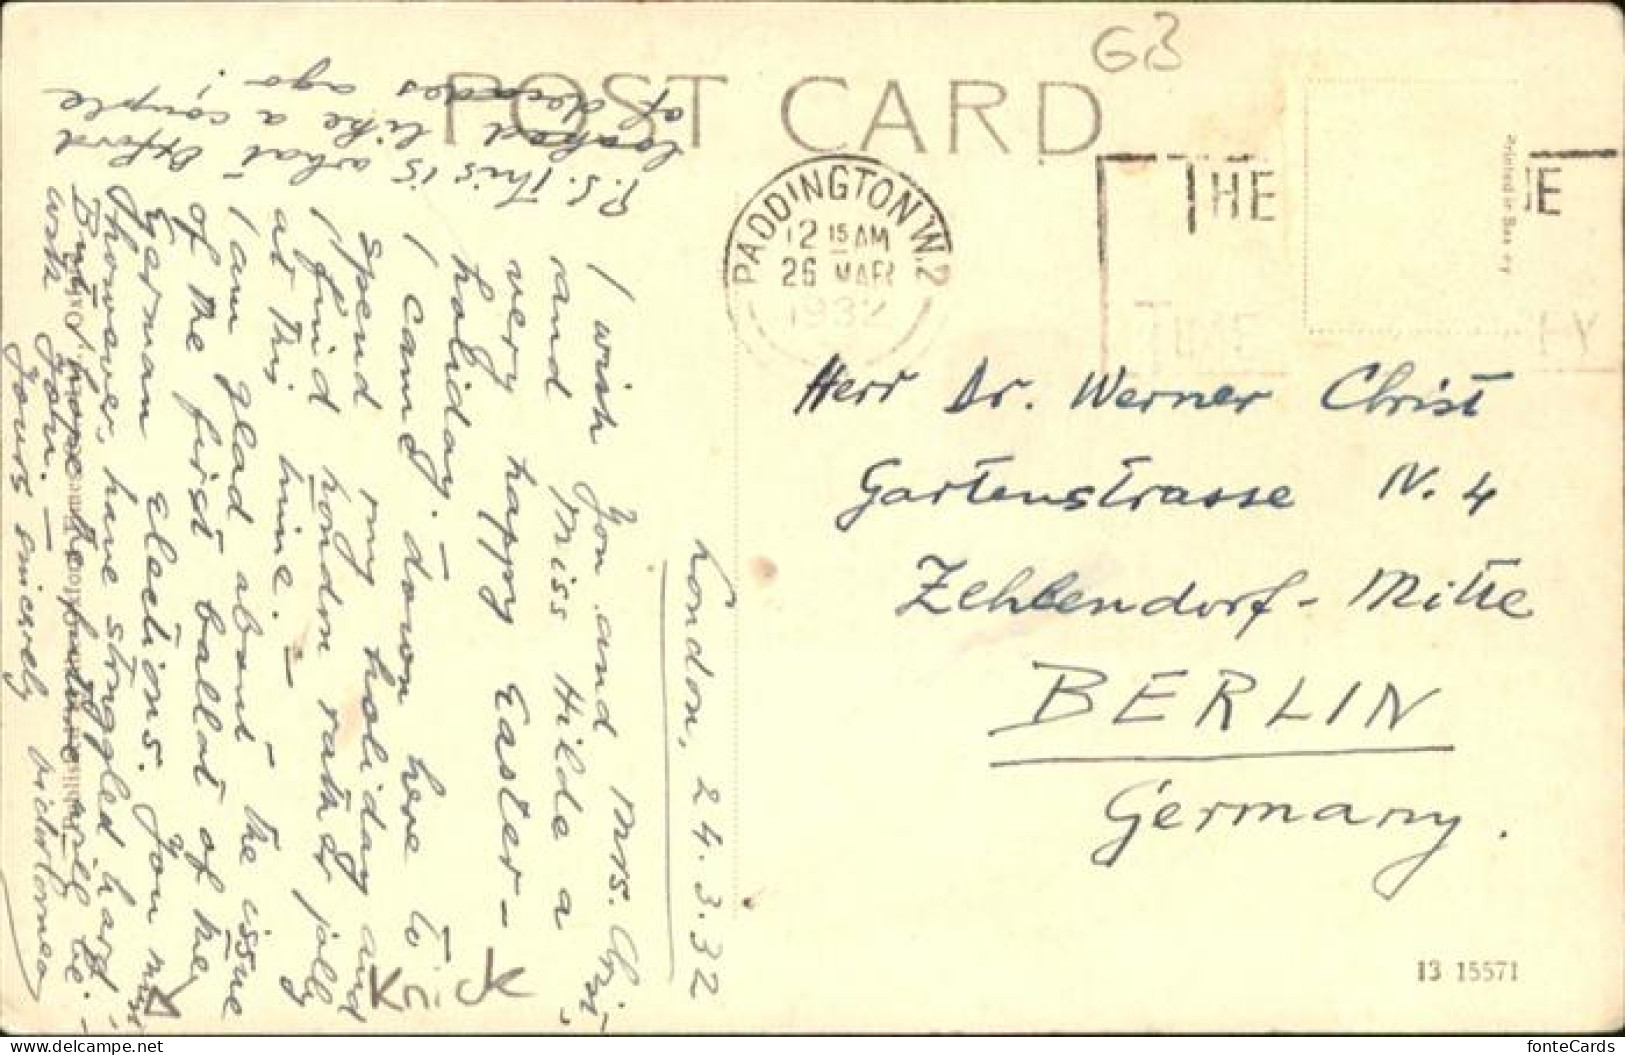 POST CARD
GB
PADDINGTON. W.2
12 15 AM
26 MAR
1932
THE
TIME
Printed in
London, 24.3.32
I wish you and Mrs. Christ,
and Miss Hilde a
very happy Easter-
holiday. –
I came down here to
spend my holiday and
I find London rather jolly
at this time. –
I am glad about the issue
of the first ballot of the
German elections. You must,
however, have struggled hard. –
But I hope the future will be.
with you. –
Yours sincerely
P.S. This is what Oxford
looked like a couple
of decades ago!
Herr Dr. Werner Christ
Gartenstrasse N. 4
Zehlendorf - Mitte
BERLIN
Germany.
13 15571
delcampe.net
fonteCards